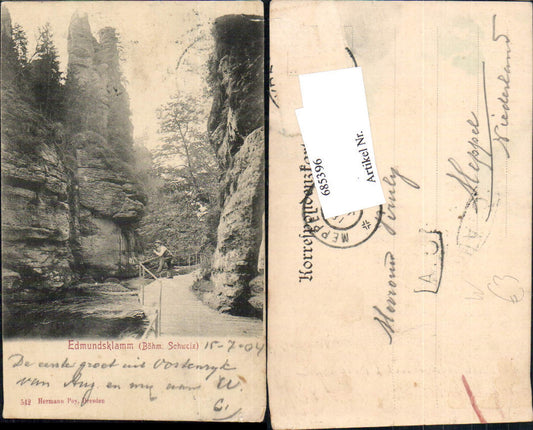 Edmundsklamm (Böhm. Schweiz) 15-7-04
De eerste groet uit Oostenryk
van Aug en my aan U.
C.
542 Hermann Poy, Dresden
Korrespondenzkarte
685396
Artikel Nr.
MEP
Mevrouw
Meppel
Niederland
A.U.
W
63